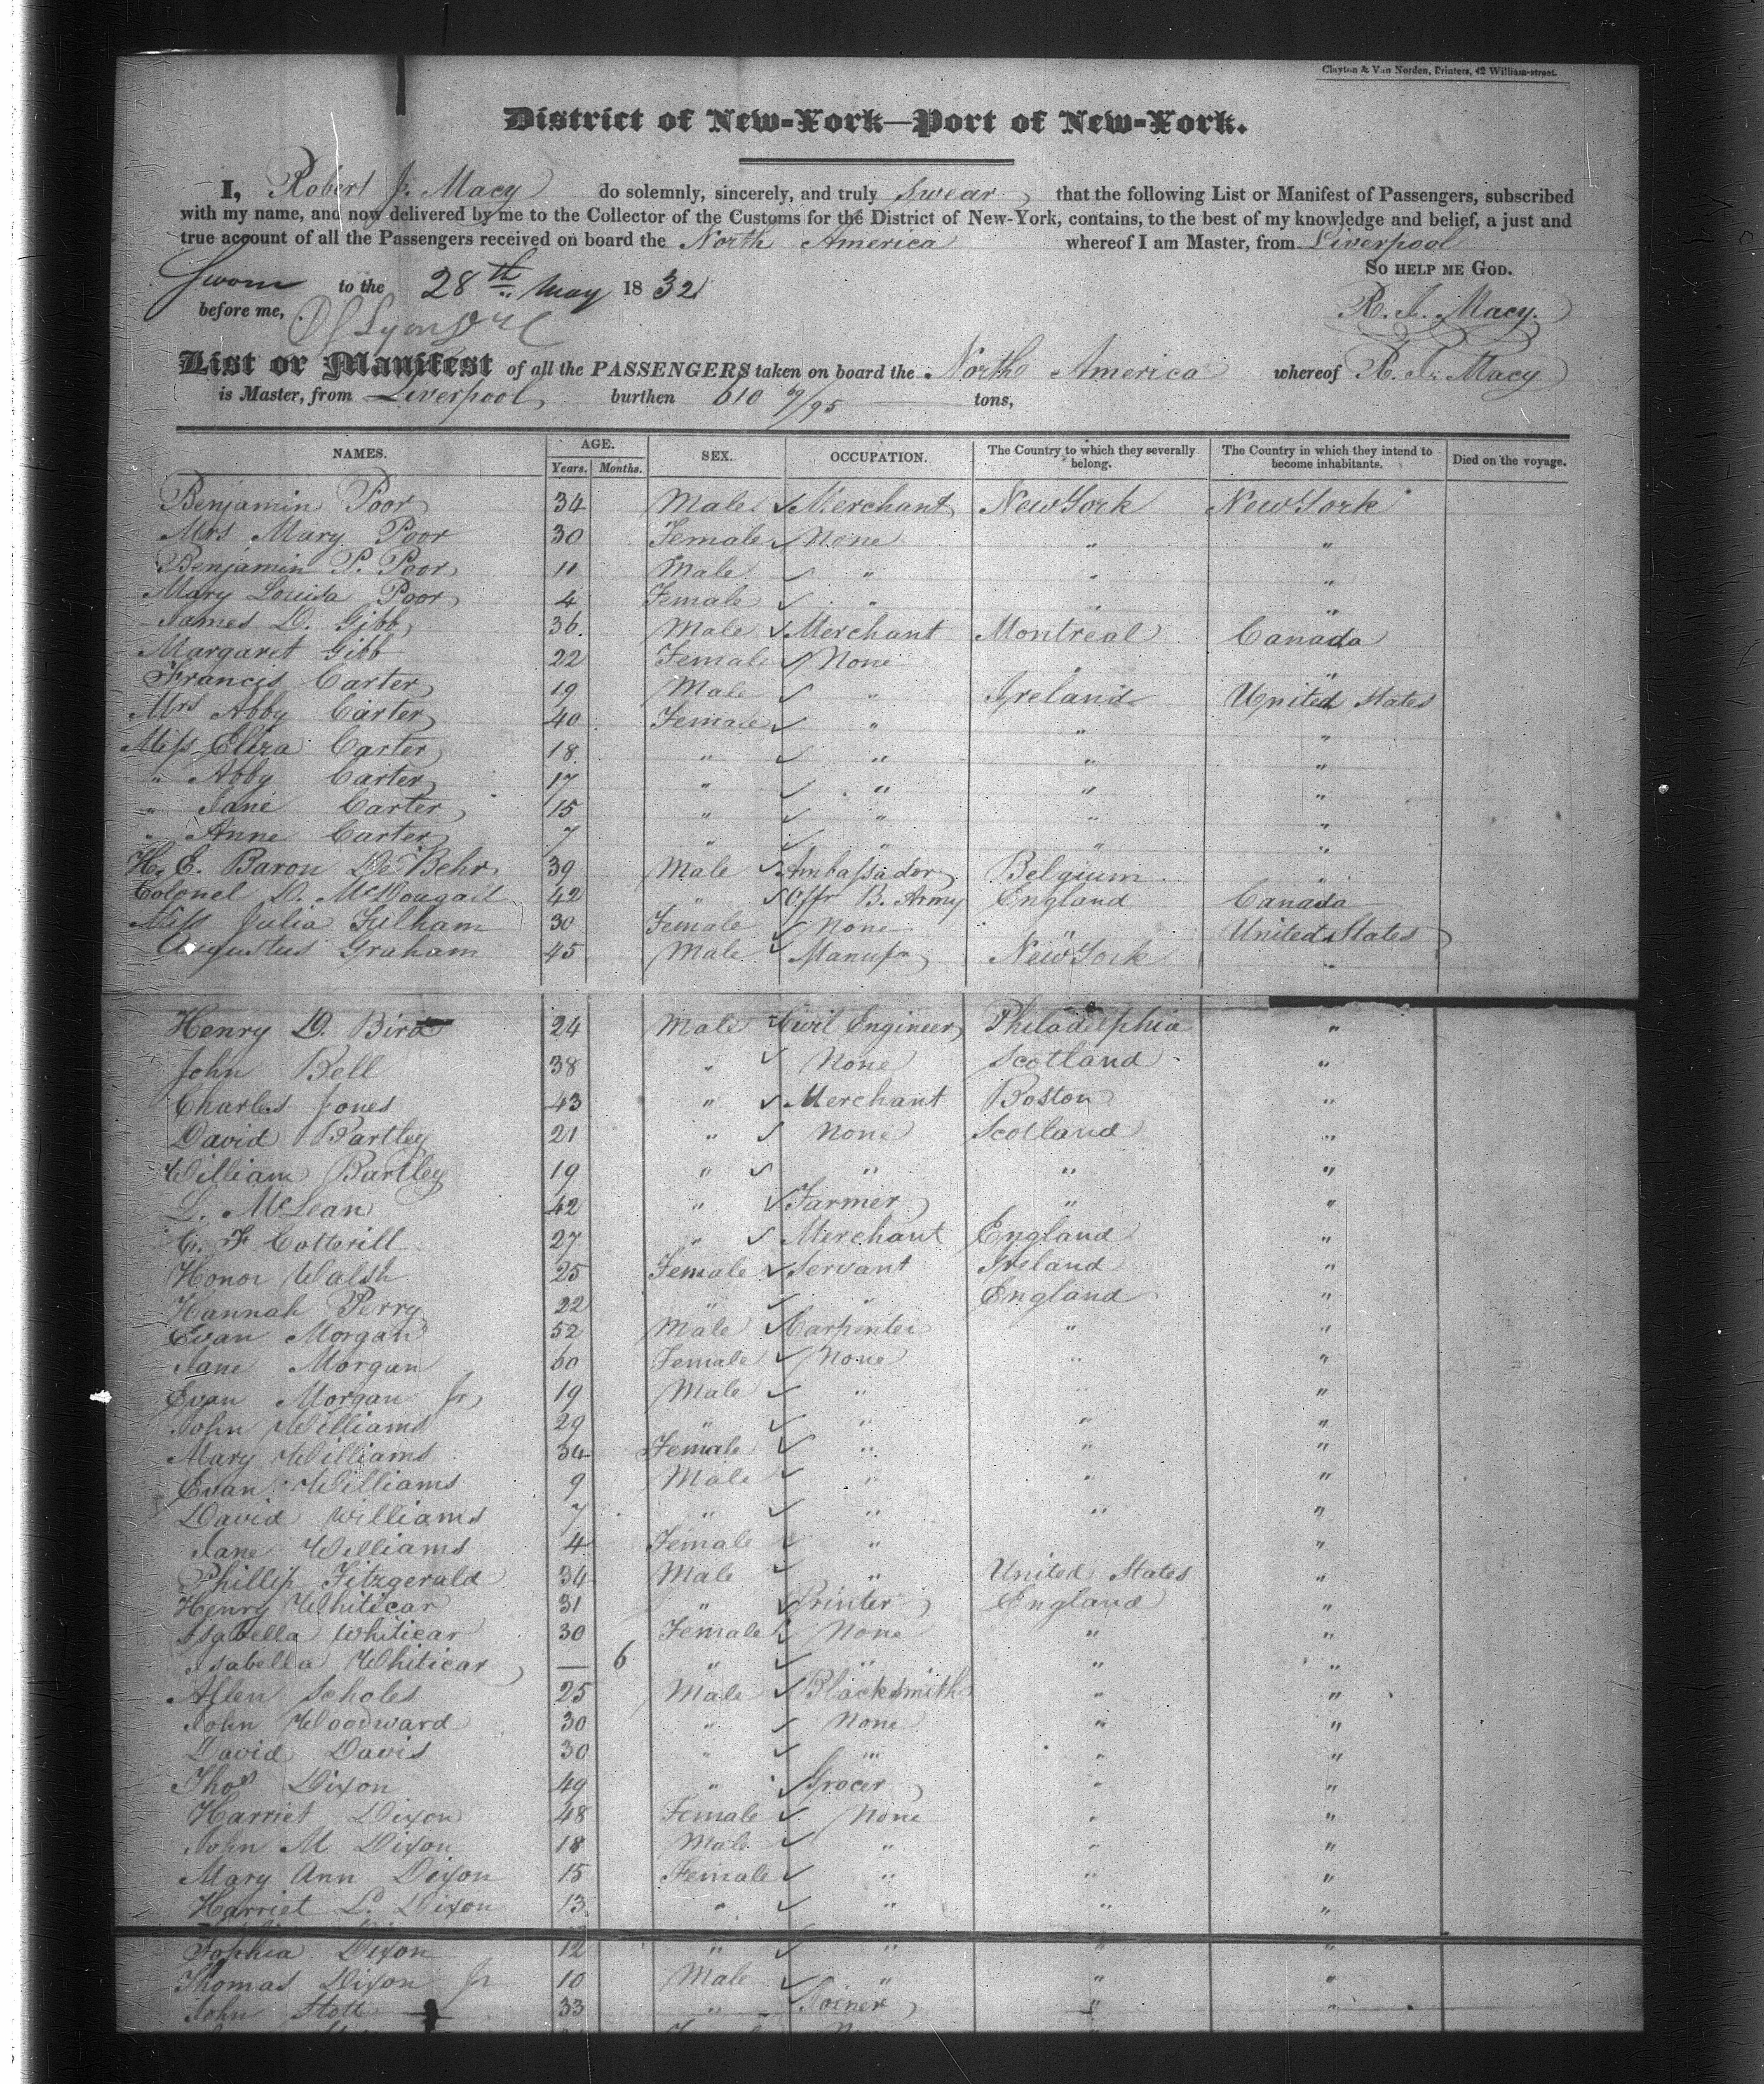 Clayton & Van Norden, Printers, 42 William-street.
District of New-York—Port of New-York.
I, Robert J. Macy do solemnly, sincerely, and truly swear that the following List or Manifest of Passengers, subscribed
with my name, and now delivered by me to the Collector of the Customs for the District of New-York, contains, to the best of my knowledge and belief, a just and
true account of all the Passengers received on board the North America whereof I am Master, from Liverpool
SO HELP ME GOD.
Sworn to the 28th May 1832
before me,
R. J. Macy.
List or Manifest of all the PASSENGERS taken on board the North America whereof R. J. Macy
is Master, from Liverpool burthen 610 69/95 tons,
NAMES. AGE. SEX. OCCUPATION. The Country to which they severally belong. The Country in which they intend to become inhabitants. Died on the voyage.
Years. Months.
Benjamin Poor 34 Male ✓ Merchant New York New York
Mrs Mary Poor 30 Female ✓ None " "
Benjamin P. Poor 11 Male ✓ " " "
Mary Louisa Poor 4 Female ✓ " " "
James D. Gibb 36. Male ✓ Merchant Montreal Canada
Margaret Gibb 22 Female ✓ None " "
Francis Carter 19 Male ✓ " Ireland United States
Mrs Abby Carter 40 Female ✓ " " "
Miss Eliza Carter 18 " ✓ " " "
" Abby Carter 17 " ✓ " " "
" Jane Carter 15 " ✓ " " "
" Anne Carter 7 " ✓ " " "
H. E. Baron De Behr 39 Male ✓ Ambassador Belgium "
Colonel D. McDougall 42 " ✓ Offr B. Army England Canada
Miss Julia Fulham 30 Female ✓ None " United States
Augustus Graham 45 Male ✓ Manufr New York "
Henry D. Bird 24 Male ✓ Civil Engineer Philadelphia "
John Bell 38 " ✓ None Scotland "
Charles Jones 43 " ✓ Merchant Boston "
David Bartley 21 " ✓ None Scotland "
William Bartley 19 " ✓ " " "
L. McLean 42 " ✓ Farmer " "
C. F. Cotterill 27 " ✓ Merchant England "
Honor Walsh 25 Female ✓ Servant Ireland "
Hannah Perry 22 " ✓ " England "
Evan Morgan 52 Male ✓ Carpenter " "
Jane Morgan 60 Female ✓ None " "
Evan Morgan Jr 19 Male ✓ " " "
John Williams 29 " ✓ " " "
Mary Williams 34 Female ✓ " " "
Evan Williams 9 Male ✓ " " "
David Williams 7 " ✓ " " "
Jane Williams 4 Female ✓ " "
Phillip Fitzgerald 34 Male ✓ " United States "
Henry Whiticar 31 " ✓ Printer England "
Isabella Whiticar 30 Female ✓ None " "
Isabella Whiticar — 6 " ✓ " " "
Allen Scholes 25 Male ✓ Blacksmith " "
John Woodward 30 " ✓ None " "
David Davis 30 " ✓ " " "
Thos Dixon 49 " ✓ Grocer " "
Harriet Dixon 48 Female ✓ None " "
John M Dixon 18 Male ✓ " " "
Mary Ann Dixon 15 Female ✓ " " "
Harriet L. Dixon 13 " ✓ " " "
Sophia Dixon 12 " ✓ " " "
Thomas Dixon Jr 10 Male ✓ " " "
John Stott 33 " ✓ Joiner " "